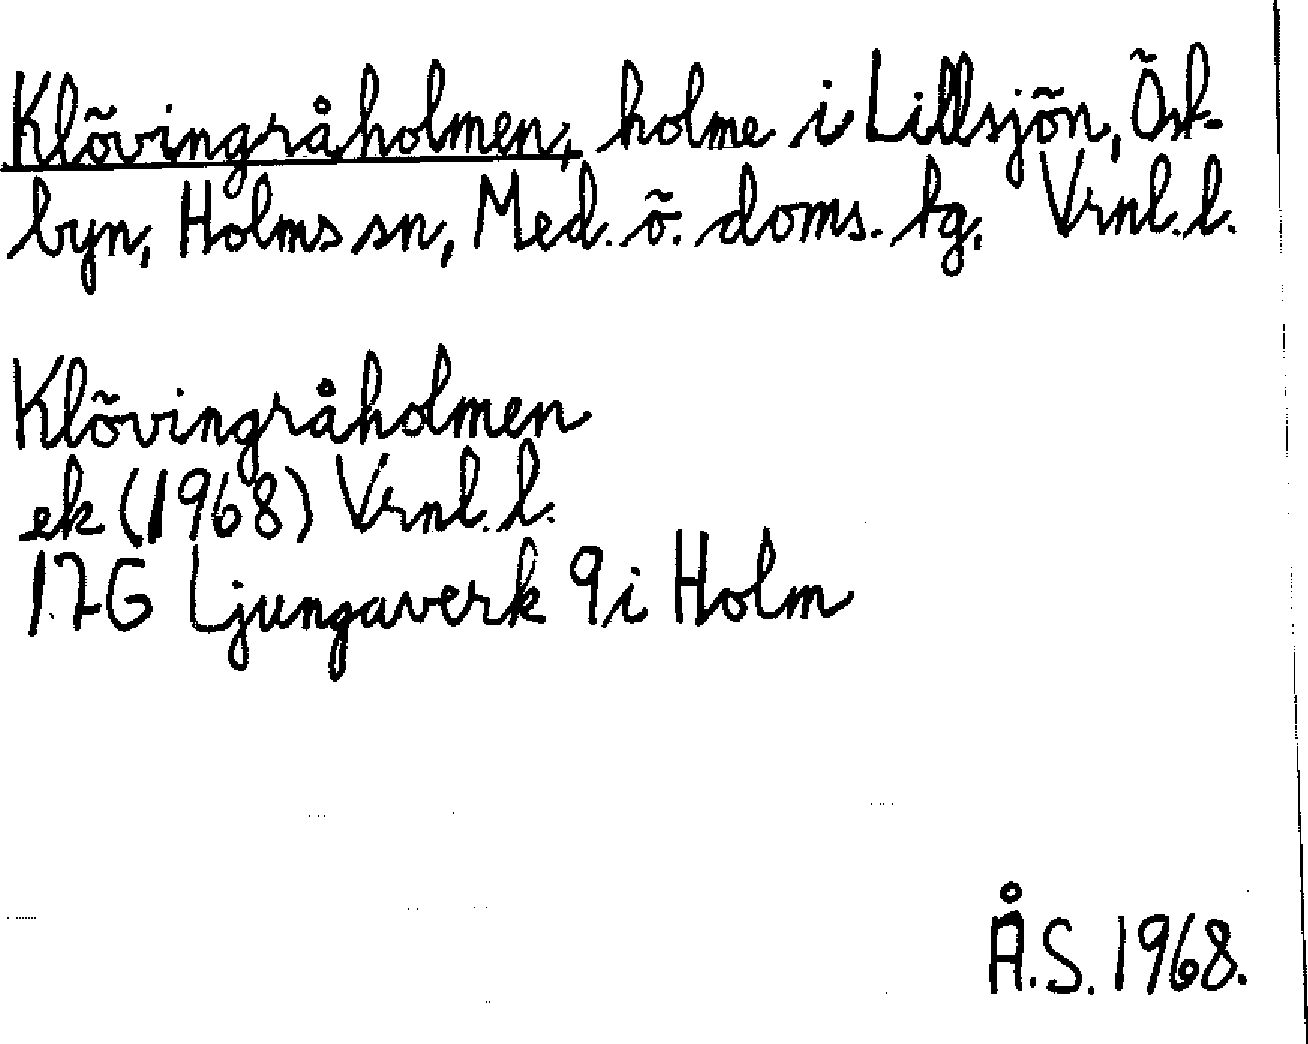 Klövingråholmen, holme i Lillsjön, Öst-
byn, Holms sn, Med. ö. doms. tg. Vrnl. l.
Klövingråholmen
ek (1968) Vrnl. l.
17G Ljungaverk 9i Holm
Å.S. 1968.